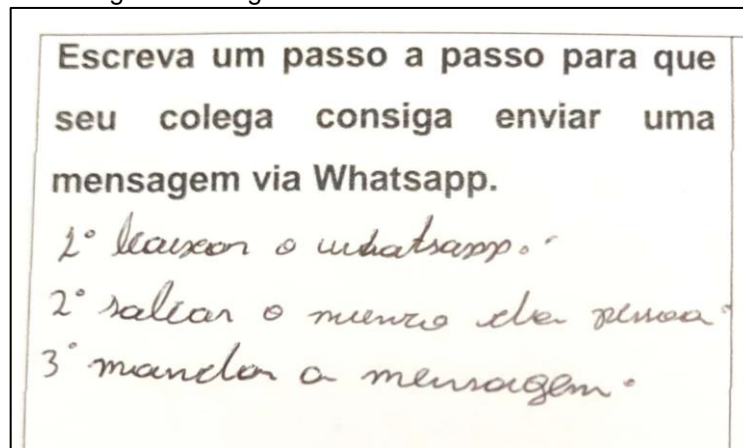 Escreva um passo a passo para que
seu colega consiga enviar uma
mensagem via Whatsapp.
1° baixar o whatsapp.
2° salvar o munro da pessoa
3° mandar a mensagem.